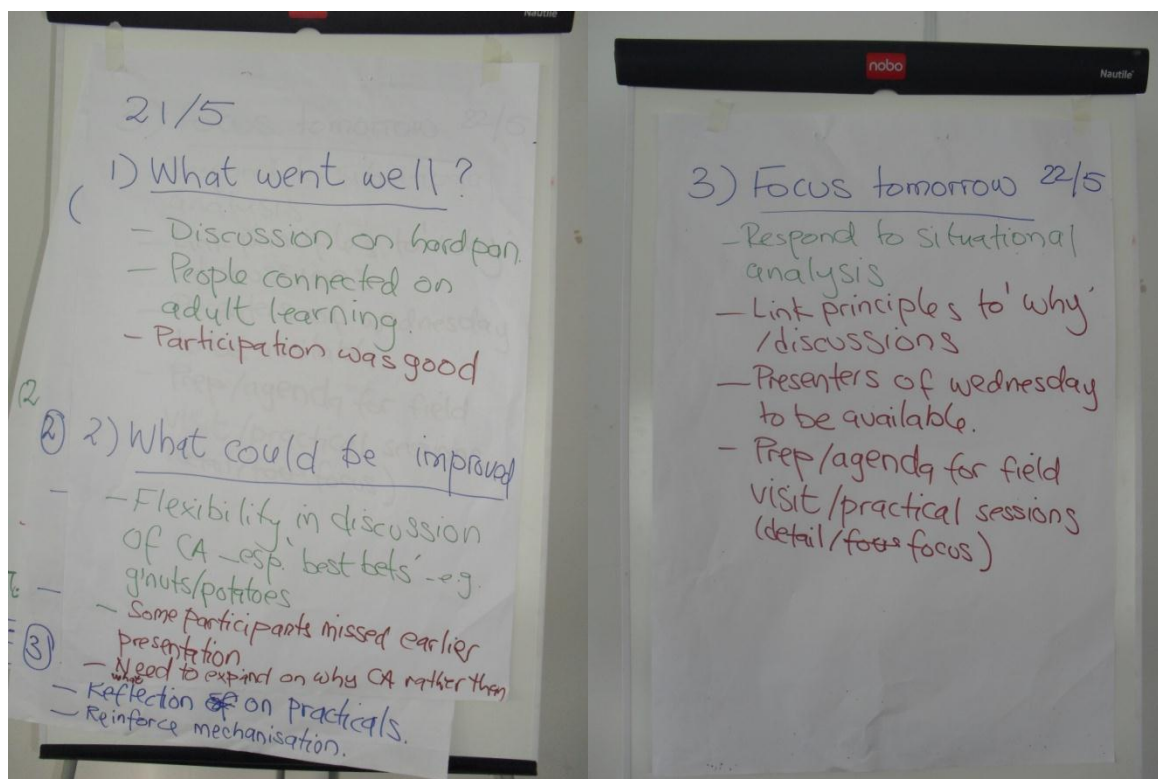 Nautile
21/5
1) What went well?
- Discussion on hard pan.
- People connected on
adult learning
- Participation was good
2) What could be improved
- Flexibility in discussion
of CA - esp. 'best bets' - e.g.
g'nuts/potatoes
- Some participants missed earlier
presentation
- Need to expand on why CA rather then
what
- Reflection on practicals.
- Reinforce mechanisation.
(2
2
3
nobo
Nautile
3) Focus tomorrow 22/5
- Respond to situational
analysis
- Link principles to 'why'
/discussions
- Presenters of wednesday
to be available.
- Prep/agenda for field
visit/practical sessions
(detail/focus focus)